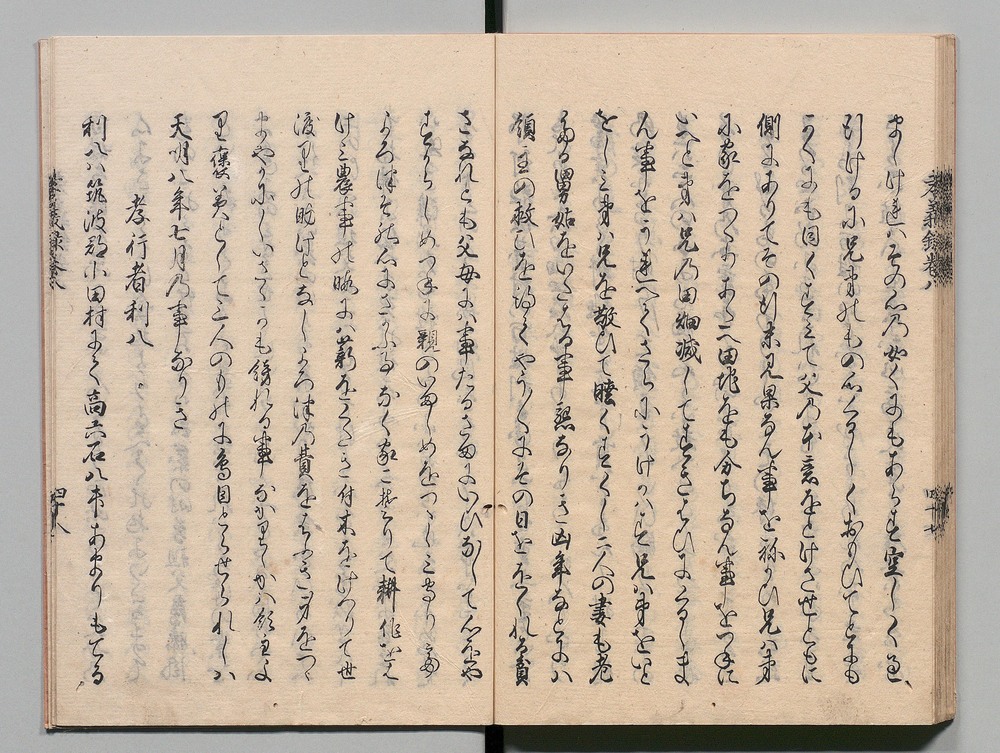 ましけれはその心の如くにもあらす空しく過
引ける小兄弟のもの心くるしくおもひてともに
かくにも因くすえて父の本意をとけさせともに
側にありてその行末見果なん事をねかひ兄ハ弟
に家をつくりあたへ田地をも分ちなん事をつねに
いへと弟ハ兄の田畑減してすきわひにくるしま
ん事をうれへてさらにうけかハす兄ハ弟をいと
をしミ弟ハ兄を敬ひて睦くすくし二人の妻も老
たる舅姑をいたはる事懇なりき凶年なとにハ
領主の救ひを得てやうくにその日をおくれる貧
さなれとも父母にハ事たるさまにいひなして心をや
すからしめつねに親のいましめをつゝしミ守り
よろつその心にさかふ事なく家こそりて耕作をは
けミ農事の暇にハ薪をこりき付木をけつりて世
渡りの助けとなしよろつの費をはふき身をつゝ
まやかにしいさゝかも飾れる事なかりけれハ領主よ
り褒美として三人のものに鳥目とらせられしハ
天明八年七月の事なりき
孝行者利八
利八ハ筑波郡小田村にて高六石八斗あまりもてる
孝義録巻八
四十七
孝義録巻八
四十八